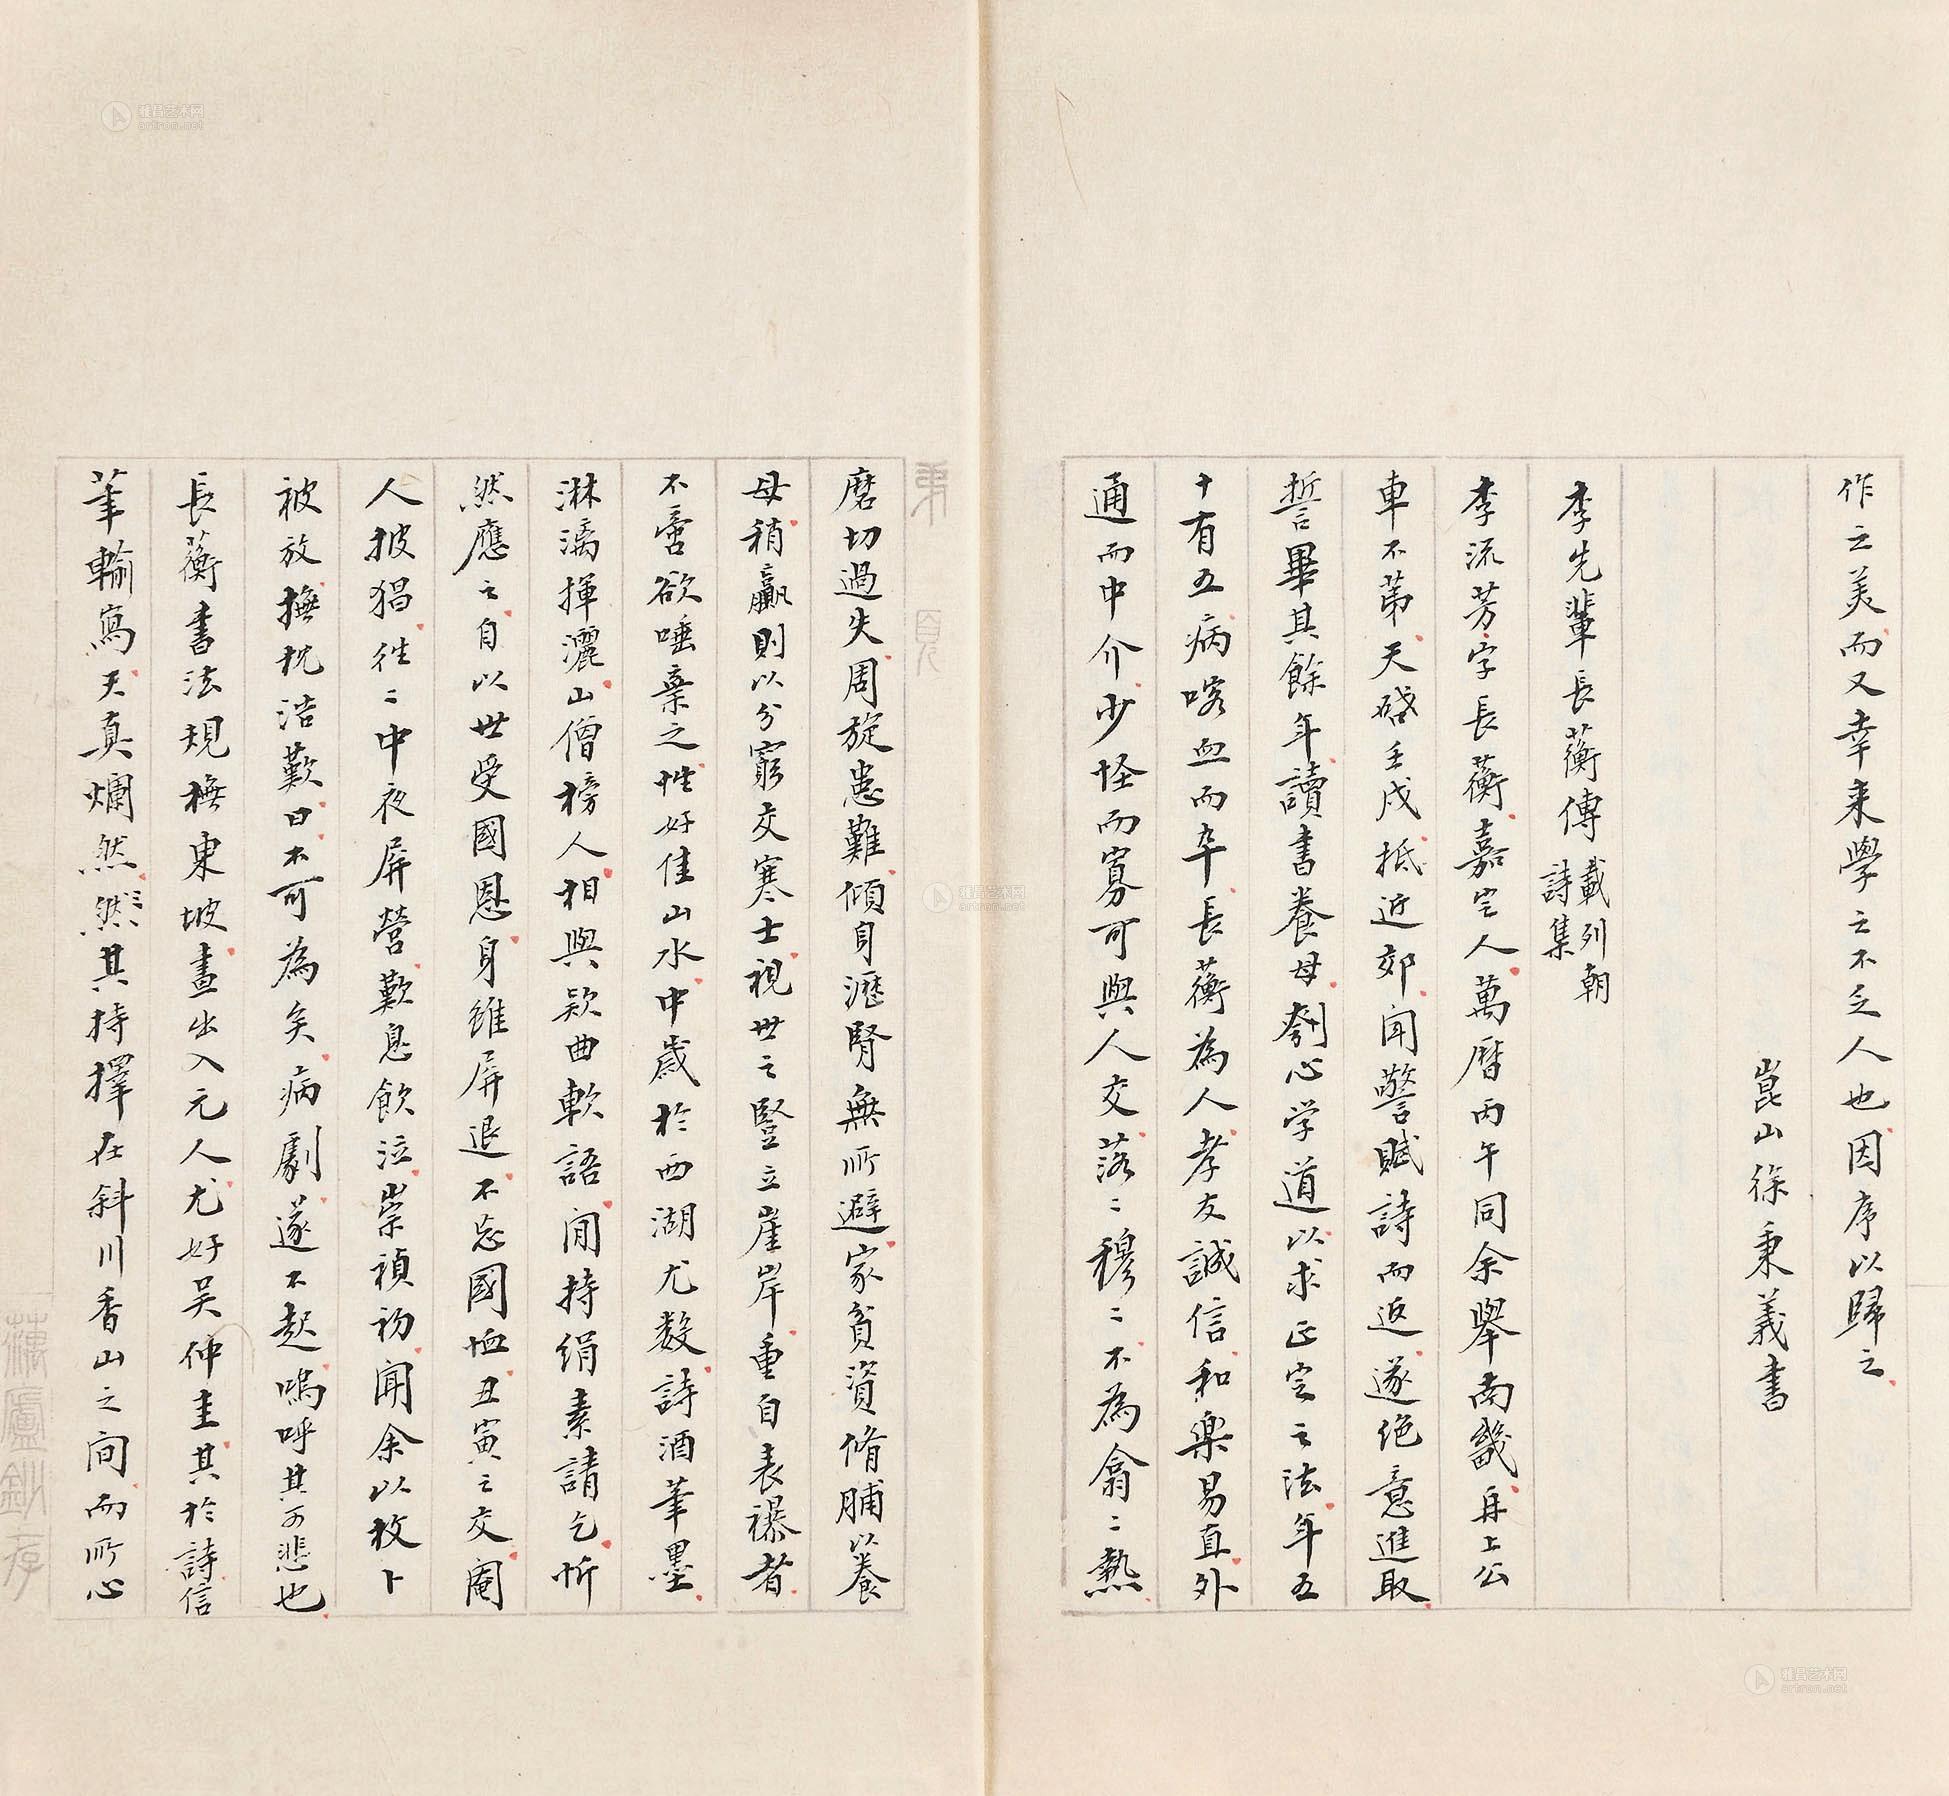 作之美而又幸来學之不乏人也因序以歸之
崑山徐秉義書
李先輩長蘅傳載列朝
詩集
李流芳字長蘅嘉定人萬曆丙午同余舉南畿再上公
車不第天啓壬戌抵近郊聞警賦詩而返遂绝意進取
誓畢其餘年讀書養母刳心学道以求正定之法年五
十有五病喀血而卒長蘅為人孝友誠信和樂易直外
通而中介少怪而寡可與人交落〻穆〻不為翕〻熱
磨切過失周旋患難傾身瀝腎無所避家貧資脩脯以養
母稍贏則以分窮交寒士視世之豎立崖岸重自表襮者
不啻欲唾棄之性好佳山水中歲於西湖尤数詩酒筆墨
淋漓揮灑山僧榜人相與欵曲軟語間持绢素請乞忻
然應之自以世受國恩身雖屏退不忘國恤丑寅之交閹
人披猖往〻中夜屏營歎息飲泣崇禎初聞余以枚卜
被放撫枕浩歎曰不可為矣病劇遂不起嗚呼其可悲也
長蘅書法規橅東坡畫出入元人尤好吴仲圭其於詩信
筆輸寫天真爛然然其持擇在斜川香山之间而所心
第 頁
雅昌艺术网
artron.net
雅昌艺术网
artron.net
雅昌艺术网
artron.net